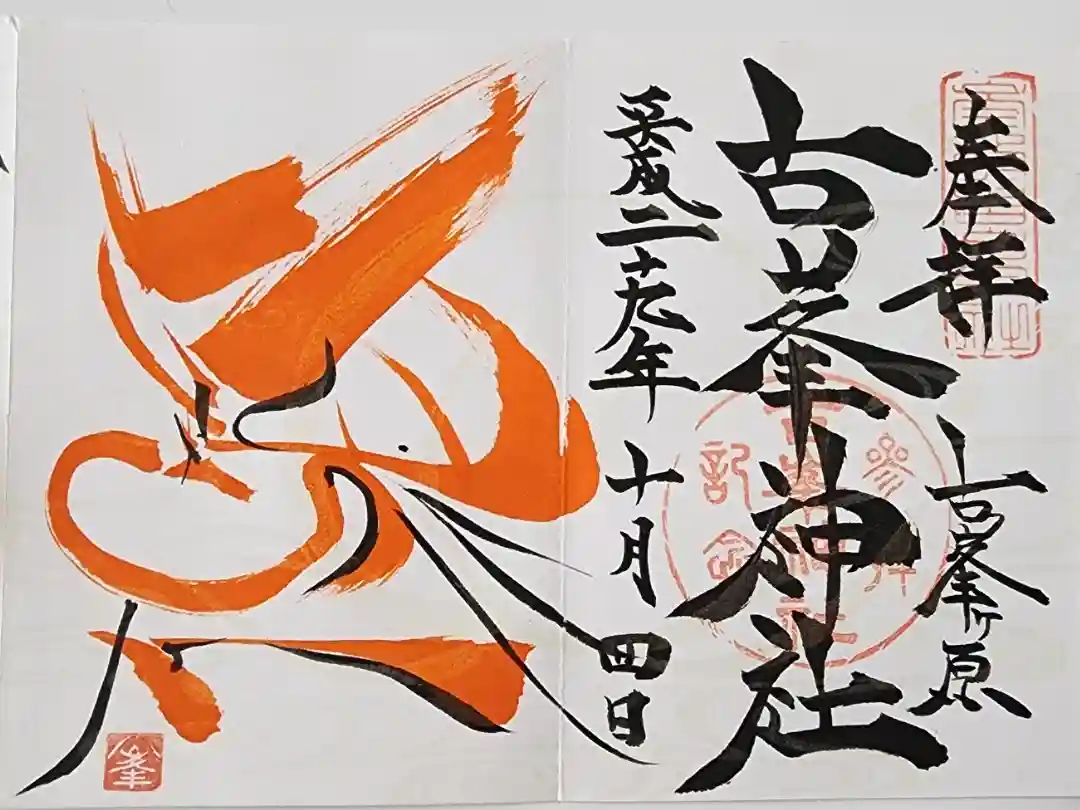 奉拝
古峯ヶ原
古峯神社
平成二十九年十月四日
参拝
古峯神社
記念
峯